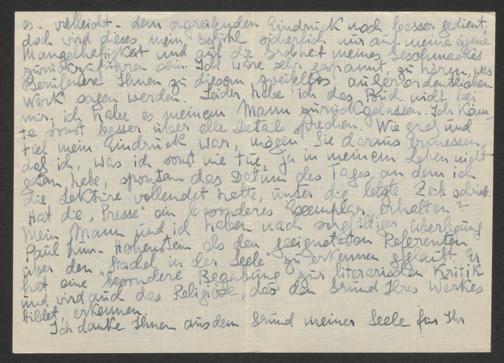 es - vielleicht - dem ergreifenden Eindruck noch besser gedient,
doch wird dieses mein Gefühl sicherlich nur auf meine eigene
Mangelhaftigkeit und auf die Grobheit meines Geschmackes
zurückzuführen sein. Ich wäre sehr gespannt, zu hören, was
Berufenere Ihnen zu diesem zweifellos außerordentlichen
Werk sagen werden. Leider habe ich das Buch nicht bei
mir, ich habe es meinem Mann zurückgelassen. Ich könn-
te sonst besser über alle Details sprechen. Wie groß und
tief mein Eindruck war, mögen Sie daraus ermessen,
daß ich, was ich sonst nie tue, ja in meinem Leben nicht
getan habe, spontan das Datum des Tages, an dem ich
die Lektüre vollendet hatte, unter die letzte Zeile schrieb.
Hat die "Presse" ein besonderes Exemplar erhalten?
Mein Mann und ich haben nach sorgfältiger Überlegung
Paul Thun-Hohenstein als den geeignetsten Referenten
über den "Stadel in der Seele" zu erkennen geglaubt. Er
hat eine besondere Begabung zur literarischen Kritik
und wird auch das Religiöse, das den Grund Ihres Werkes
bildet, erkennen.
Ich danke Ihnen aus dem Grund meiner Seele für Ihr